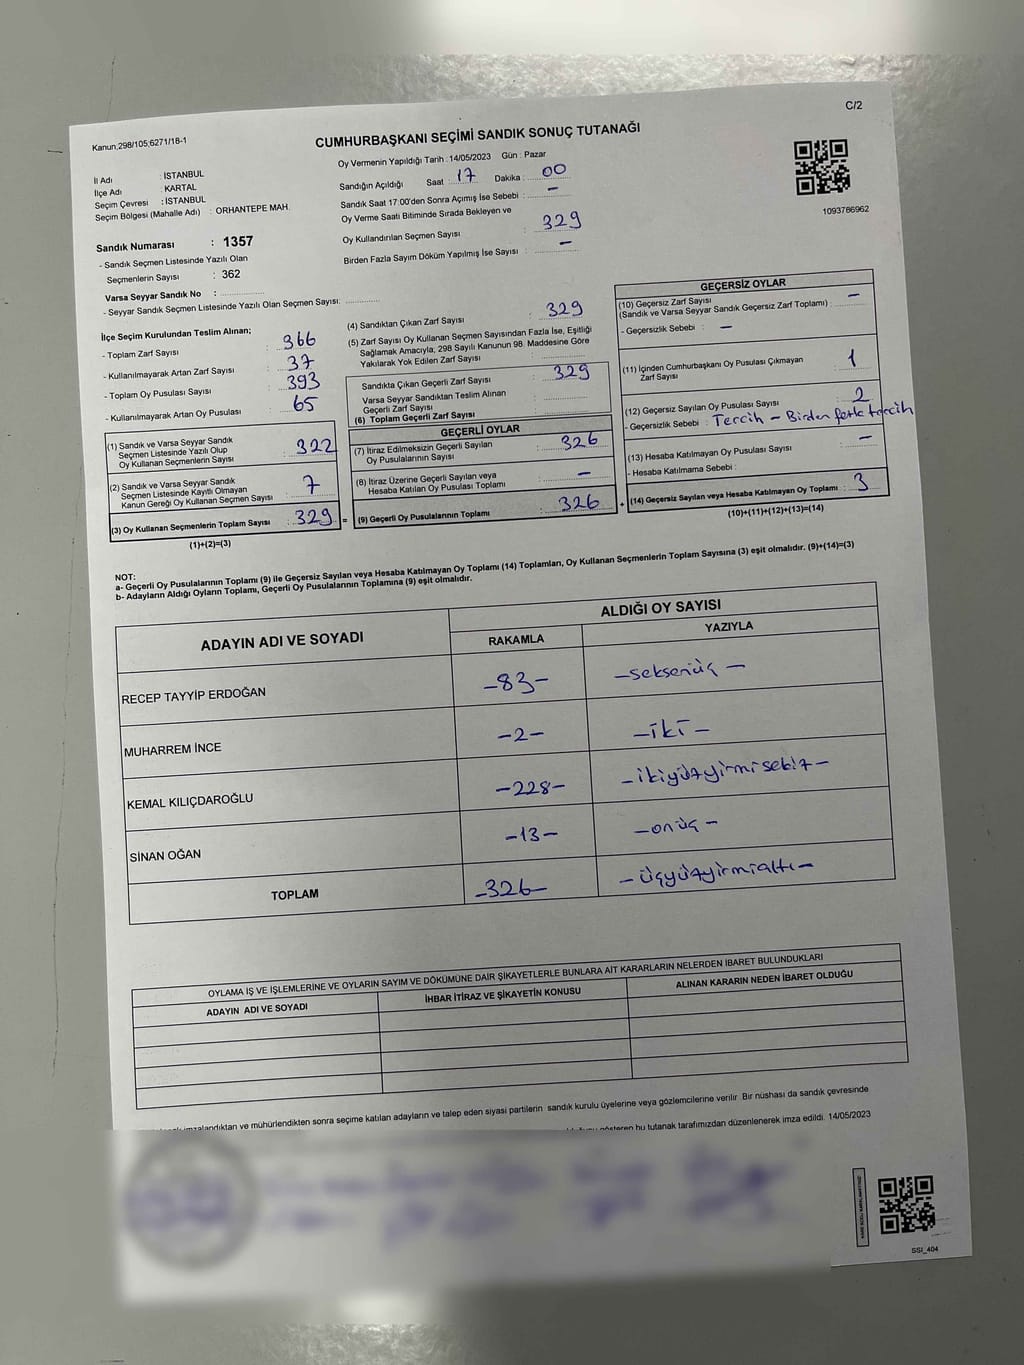 C/2
Kanun,298/105,6271/18-1
CUMHURBAŞKANI SEÇİMİ SANDIK SONUÇ TUTANAĞI
Oy Vermenin Yapıldığı Tarih : 14/05/2023 Gün : Pazar
İl Adı : İSTANBUL
İlçe Adı : KARTAL
Seçim Çevresi : İSTANBUL
Seçim Bölgesi (Mahalle Adı) : ORHANTEPE MAH.
Sandığın Açıldığı Saat 17 Dakika : 00
Sandık Saat 17:00'den Sonra Açımış İse Sebebi : –
Oy Verme Saati Bitiminde Sırada Bekleyen ve
Oy Kullandırılan Seçmen Sayısı : 329
Birden Fazla Sayım Döküm Yapılmış İse Sayısı : –
1093786962
Sandık Numarası : 1357
- Sandık Seçmen Listesinde Yazılı Olan
Seçmenlerin Sayısı : 362
Varsa Seyyar Sandık No :
- Seyyar Sandık Seçmen Listesinde Yazılı Olan Seçmen Sayısı:
İlçe Seçim Kurulundan Teslim Alınan;
- Toplam Zarf Sayısı : 366
- Kullanılmayarak Artan Zarf Sayısı : 37
- Toplam Oy Pusulası Sayısı : 393
- Kullanılmayarak Artan Oy Pusulası : 65
(1) Sandık ve Varsa Seyyar Sandık
Seçmen Listesinde Yazılı Olup
Oy Kullanan Seçmenlerin Sayısı : 322
(2) Sandık ve Varsa Seyyar Sandık
Seçmen Listesinde Kayıtlı Olmayan
Kanun Gereği Oy Kullanan Seçmen Sayısı : 7
(3) Oy Kullanan Seçmenlerin Toplam Sayısı : 329 =
(1)+(2)=(3)
(4) Sandıktan Çıkan Zarf Sayısı : 329
(5) Zarf Sayısı Oy Kullanan Seçmen Sayısından Fazla İse, Eşitliği
Sağlamak Amacıyla, 298 Sayılı Kanunun 98. Maddesine Göre
Yakılarak Yok Edilen Zarf Sayısı :
Sandıkta Çıkan Geçerli Zarf Sayısı : 329
Varsa Seyyar Sandıktan Teslim Alınan
Geçerli Zarf Sayısı :
(6) Toplam Geçerli Zarf Sayısı
GEÇERLİ OYLAR
(7) İtiraz Edilmeksizin Geçerli Sayılan
Oy Pusulalarının Sayısı : 326
(8) İtiraz Üzerine Geçerli Sayılan veya
Hesaba Katılan Oy Pusulası Toplamı : –
(9) Geçerli Oy Pusulalarının Toplamı : 326 +
GEÇERSİZ OYLAR
(10) Geçersiz Zarf Sayısı
(Sandık ve Varsa Seyyar Sandık Geçersiz Zarf Toplamı) : –
- Geçersizlik Sebebi : –
(11) İçinden Cumhurbaşkanı Oy Pusulası Çıkmayan
Zarf Sayısı : 1
(12) Geçersiz Sayılan Oy Pusulası Sayısı : 2
- Geçersizlik Sebebi : Tercih – Birden fazla tercih
(13) Hesaba Katılmayan Oy Pusulası Sayısı : –
- Hesaba Katılmama Sebebi :
(14) Geçersiz Sayılan veya Hesaba Katılmayan Oy Toplamı : 3
(10)+(11)+(12)+(13)=(14)
NOT:
a- Geçerli Oy Pusulalarının Toplamı (9) ile Geçersiz Sayılan veya Hesaba Katılmayan Oy Toplamı (14) Toplamları, Oy Kullanan Seçmenlerin Toplam Sayısına (3) eşit olmalıdır. (9)+(14)=(3)
b- Adayların Aldığı Oyların Toplamı, Geçerli Oy Pusulalarının Toplamına (9) eşit olmalıdır.
ADAYIN ADI VE SOYADI ALDIĞI OY SAYISI
RAKAMLA YAZIYLA
RECEP TAYYİP ERDOĞAN –83– –seksenüç –
MUHARREM İNCE –2– –iki –
KEMAL KILIÇDAROĞLU –228– –ikiyüzyirmisekiz–
SİNAN OĞAN –13– –onüç –
TOPLAM –326– – üçyüzyirmialtı–
OYLAMA İŞ VE İŞLEMLERİNE VE OYLARIN SAYIM VE DÖKÜMÜNE DAİR ŞİKAYETLERLE BUNLARA AİT KARARLARIN NELERDEN İBARET BULUNDUKLARI
ADAYIN ADI VE SOYADI İHBAR İTİRAZ VE ŞİKAYETİN KONUSU ALINAN KARARIN NEDEN İBARET OLDUĞU
imzalandıktan ve mühürlendikten sonra seçime katılan adayların ve talep eden siyasi partilerin sandık kurulu üyelerine veya gözlemcilerine verilir. Bir nüshası da sandık çevresinde
gösteren bu tutanak tarafımızdan düzenlenerek imza edildi. 14/05/2023
SSI_404